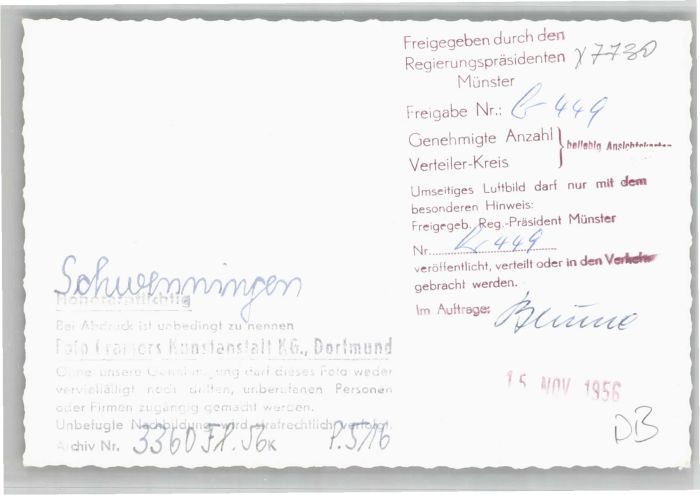 Freigegeben durch den
Regierungspräsidenten
Münster
X7730
Freigabe Nr.: G 449
Genehmigte Anzahl
Verteiler-Kreis
} beliebig Ansichtskarten
Umseitiges Luftbild darf nur mit dem
besonderen Hinweis:
Freigegeb. Reg.-Präsident Münster
Nr. G 449
veröffentlicht, verteilt oder in den Verkehr
gebracht werden.
Im Auftrage:
15 NOV 1956
DB
Schwenningen
Honorarpflichtig
Bei Abdruck ist unbedingt zu nennen
Foto Cramers Kunstanstalt KG., Dortmund
Ohne unsere Genehmigung darf dieses Foto weder
vervielfältigt noch dritten, unberufenen Personen
oder Firmen zugängig gemacht werden.
Unbefugte Nachbildung wird strafrechtlich verfolgt.
Archiv Nr. 3360 Fl. 56K P.5/16